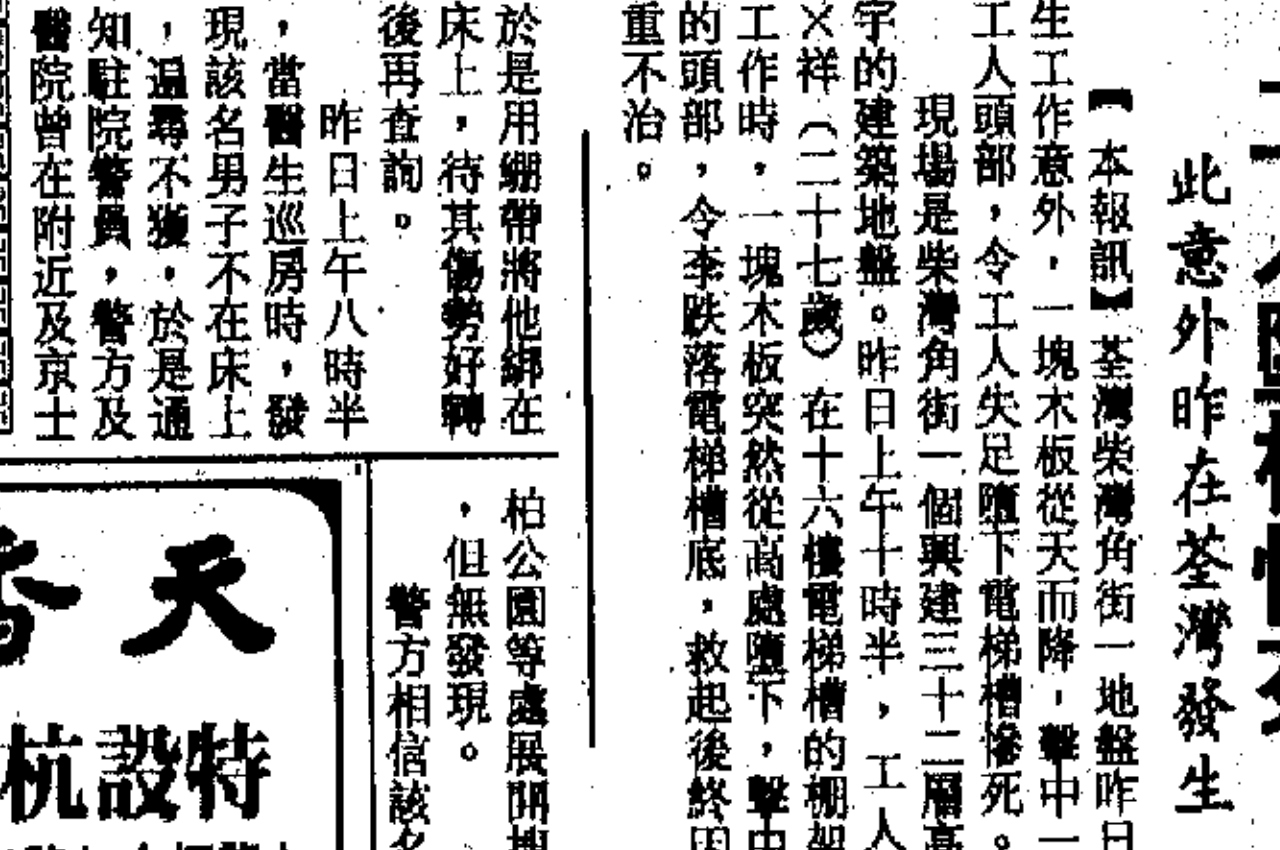 此意外昨在荃灣發生
【本報訊】荃灣柴灣角街一地盤昨日
生工作意外，一塊木板從天而降，擊中一
工人頭部，令工人失足墮下電梯槽慘死。
現場是柴灣角街一個興建三十二層高
宇的建築地盤。昨日上午十時半，工人
×祥（二十七歲）在十六樓電梯槽的棚架
工作時，一塊木板突然從高處墮下，擊中
的頭部，令李跌落電梯槽底，救起後終因
重不治。
於是用繃帶將他綁在
床上，待其傷勢好轉
後再查詢。
昨日上午八時半
，當醫生巡房時，發
現該名男子不在床上
，遍尋不獲，於是通
知駐院警員，警方及
醫院曾在附近及京士
柏公園等處展開搜
，但無發現。
警方相信該名
天香
特設杭